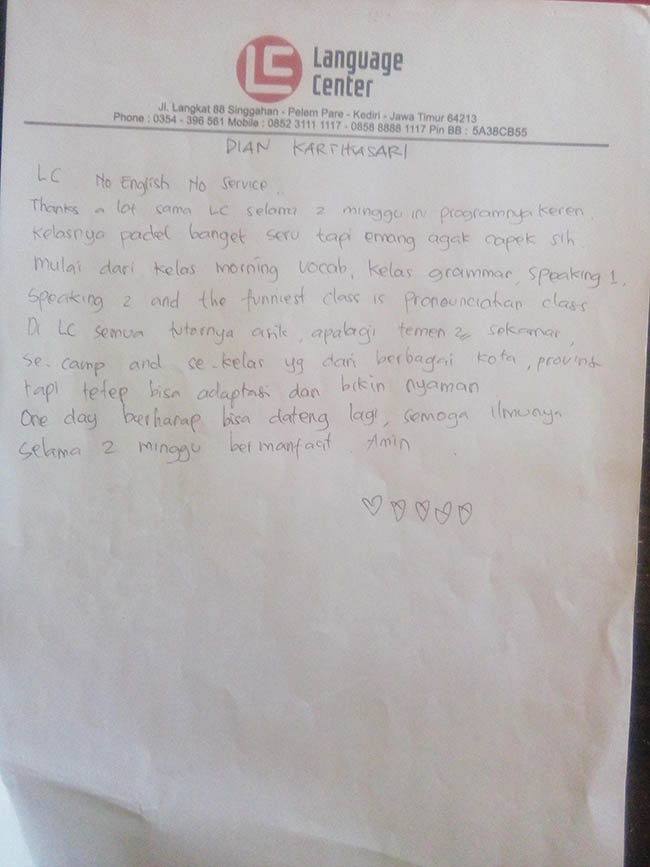 LC Language
Center
Jl. Langkat 88 Singgahan - Pelem Pare - Kediri - Jawa Timur 64213
Phone : 0354 - 396 561 Mobile : 0852 3111 1117 - 0858 8888 1117 Pin BB : 5A38CB55
DIAN KARTIKASARI
LC No English No Service..
Thanks a lot sama LC selama 2 minggu ini programnya keren.
Kelasnya padet banget seru tapi emang agak capek sih
mulai dari kelas morning vocab, kelas grammar, speaking 1,
speaking 2 and the funniest class is pronounciation class
Di LC semua tutornya asik, apalagi temen 2 sekamar,
se. camp and se-kelas yg dari berbagai kota, provinsi
tapi tetep bisa adaptasi dan bikin nyaman
One day berharap bisa dateng lagi, semoga ilmunya
selama 2 minggu bermanfaat. Amin.